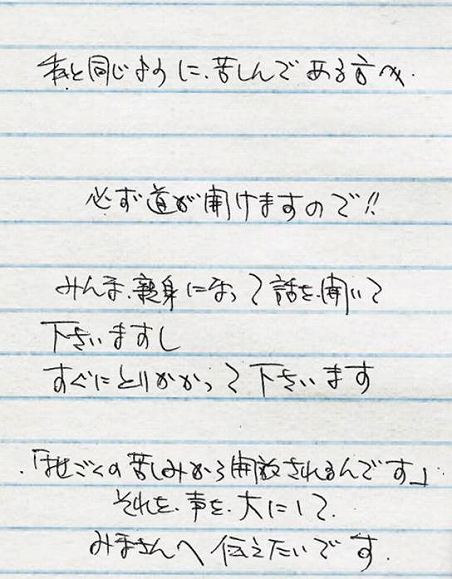 私と同じように、苦しんである方へ
必ず道が開けますので!!
みんな、親身になって話を、聞いて
下さいますし
すぐにとりかかって下さいます
「ぢごくの苦しみから開放されるんです」
それを、声を、大にして、
みなさんへ伝えたいです